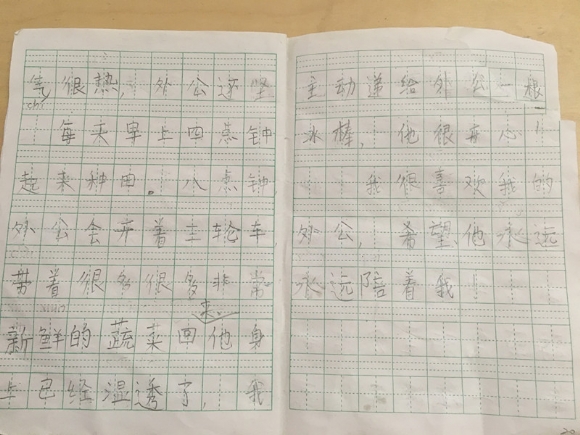 气很热，外公还坚
chí
每天早上四点钟
起来种田。八点钟
外公会开着三轮车
带着很多很多非常
来
新鲜的蔬菜回他身
上已经湿透了，我
主动递给外公一根
冰棒，他很开心！
我很喜欢我的
外公，希望他永远
永远陪着我